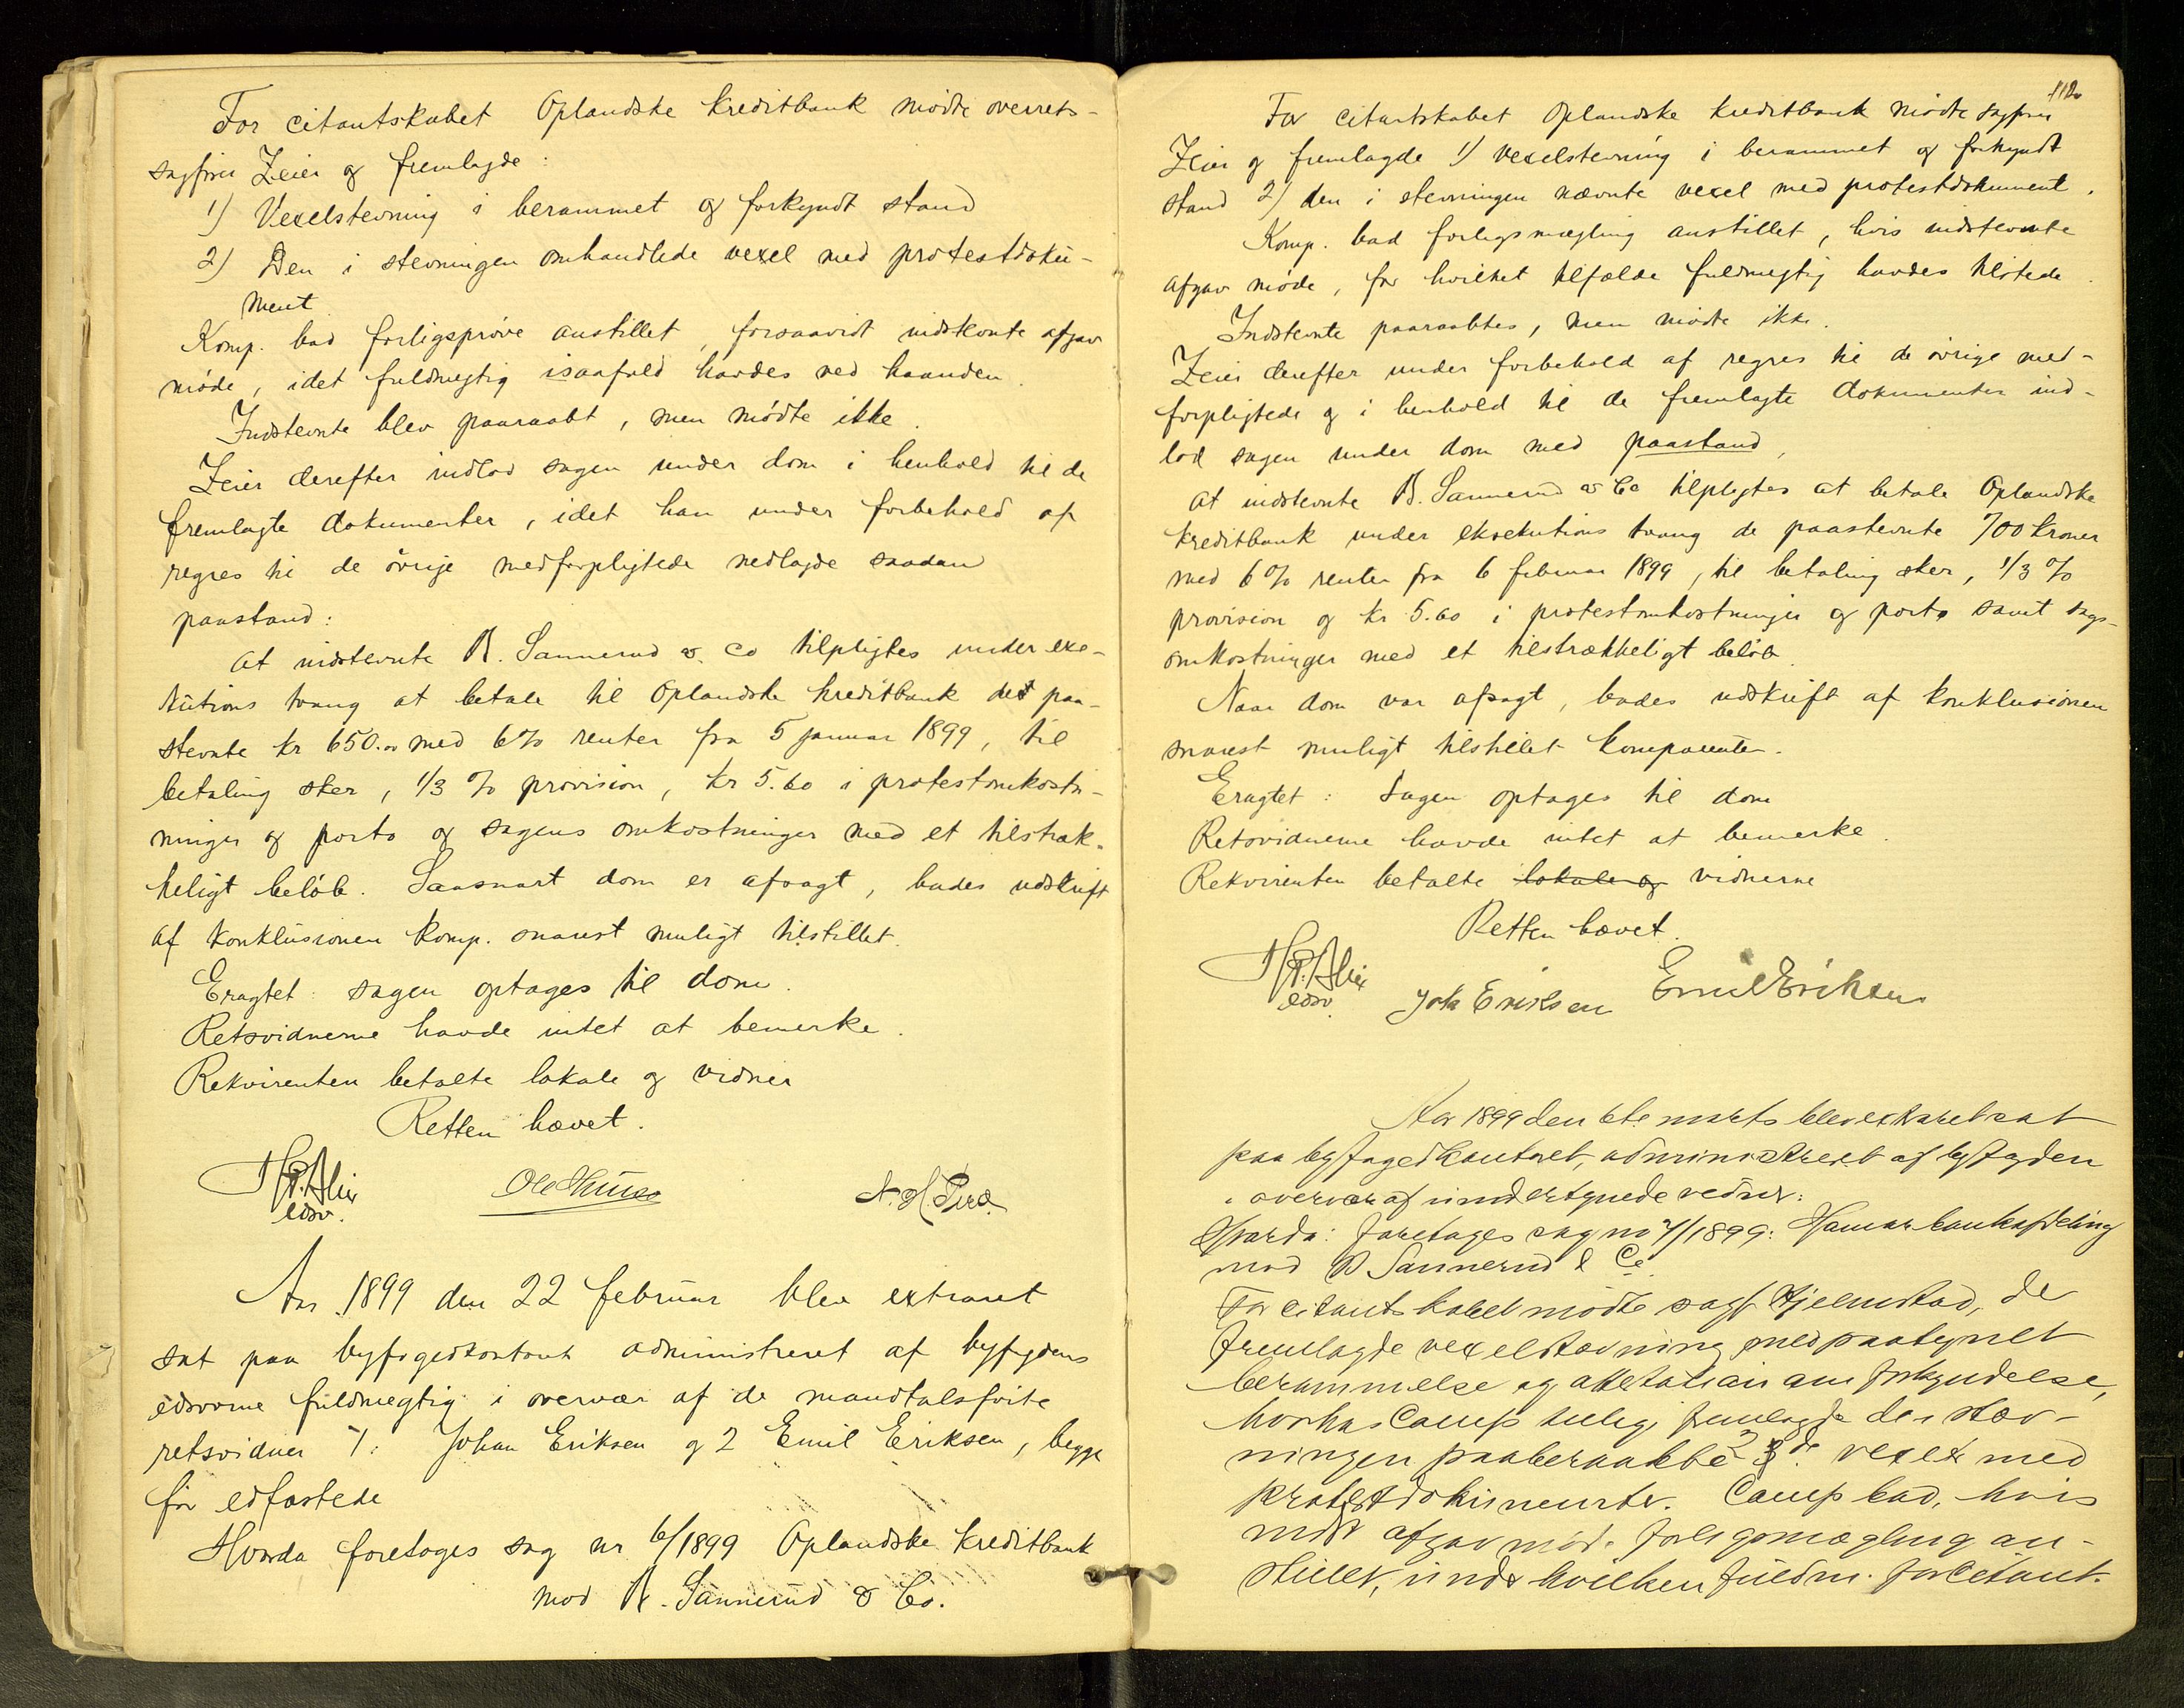 For citantskabet Oplandske kreditbank mødte overrets-
sagfører Zeier og fremlagde:
1) Vexelstevning i berammet og forkyndt stand
2) Den i stevningen omhandlede vexel med protestdoku-
ment
Komp. bad forligsprøve anstillet, forsaavidt indstevnte afgav
møde, idet fuldmegtig isaafald havdes ved haanden.
Indstevnte blev paaraabt, men mødte ikke.
Zeier derefter indlod sagen under dom i henhold til de
fremlagte dokumenter, idet han under forbehold af
regres til de øvrige medforpligtede nedlagde saadan
paastand:
At indstevnte R. Sannerud & Co tilpligtes under exe-
kutions tvang at betale til Oplandske kreditbank det paa-
stevnte kr 650.00 med 6% renter fra 5 januar 1899, til
betaling sker, 1/3 % provision, kr 5.60 i protestomkost-
ninger og porto og sagens omkostninger med et tilstræk-
keligt beløb. Saasnart dom er afsagt, bades udskrift
af konklusionen komp. snarest muligt tilstillet.
Eragtet: sagen optages til dom.
Retsvidnerne havde intet at bemerke.
Rekvirenten betalte lokale og vidner
Retten hævet.
edsv.
Aar 1899 den 22 februar blev extraret
sat paa byfogedkontoret administreret af byfogdens
edsvorne fuldmegtig i overvær af de mandtalsførte
retsvidner 1: Johan Eriksen og 2 Emil Eriksen, begge
før edfæstede
Hvorda foretages sag nr 6/1899 Oplandske kreditbank
mod R. Sannerud & Co.
112
For citantskabet Oplandske kreditbank mødte sagfører
Zeier og fremlagde 1) vexelstevning i berammet og forkyndt
stand 2) den i stevningen nævnte vexel med protestdokument.
Komp. bad forligsmægling anstillet, hvis indstevnte
afgav møde, for hvilket tilfælde fuldmegtig havdes tilstede.
Indstevnte paaraabtes, men mødte ikke.
Zeier derefter under forbehold af regres til de øvrige med-
forpligtede og i henhold til de fremlagte dokumenter ind-
lod sagen under dom med paastand,
At indstevnte R. Sannerud & Co tilpligtes at betale Oplandske
kreditbank under eksekutions tvang de paastevnte 700 kroner
med 6% renter fra 6 februar 1899, til betaling sker, 1/3 %
provision og kr 5.60 i protestomkostninger og porto samt sags-
omkostninger med et tilstrækkeligt beløb.
Naar dom var afsagt, bades udskrift af konklusionen
snarest muligt tilstillet komparenten.
Eragtet: Sagen optages til dom
Retsvidnerne havde intet at bemerke.
Rekvirenten betalte lokale og vidnerne
Retten hævet.
edsv. Joh Eriksen Emil Eriksen
Aar 1899 den 6te marts blev extraret sat
paa byfogedkontoret, administreret af byfogden
i overvær af undertegnede vidner:
Hvorda: foretages sag no 7/1899: Hamar bankafdeling
mod R Sannerud & Co.
For citantskabet mødte sagf. Hjelmstad, der
fremlagde vexelstævning med paategnet
berammelse og attestation om forkyndelse,
hvorhos Comp fremlagde de i stæv-
ningen paaberaabte 2de vexler med
protestdokumenter. Comp bad, hvis
indst afgav møde forligsmægling an-
stillet, under hvilken fuldm. for Citant-